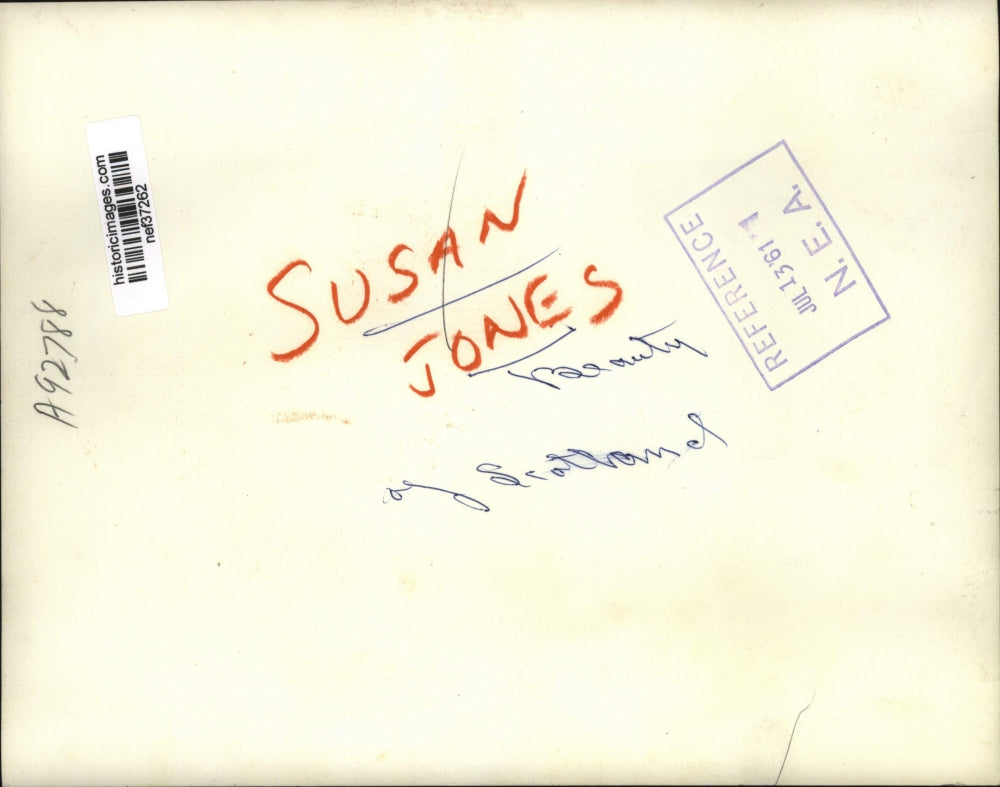 historicimages.com
nef37262
A92788
SUSAN
JONES
Beauty
of Scotland
REFERENCE
JUL 13 '61
N. E. A.